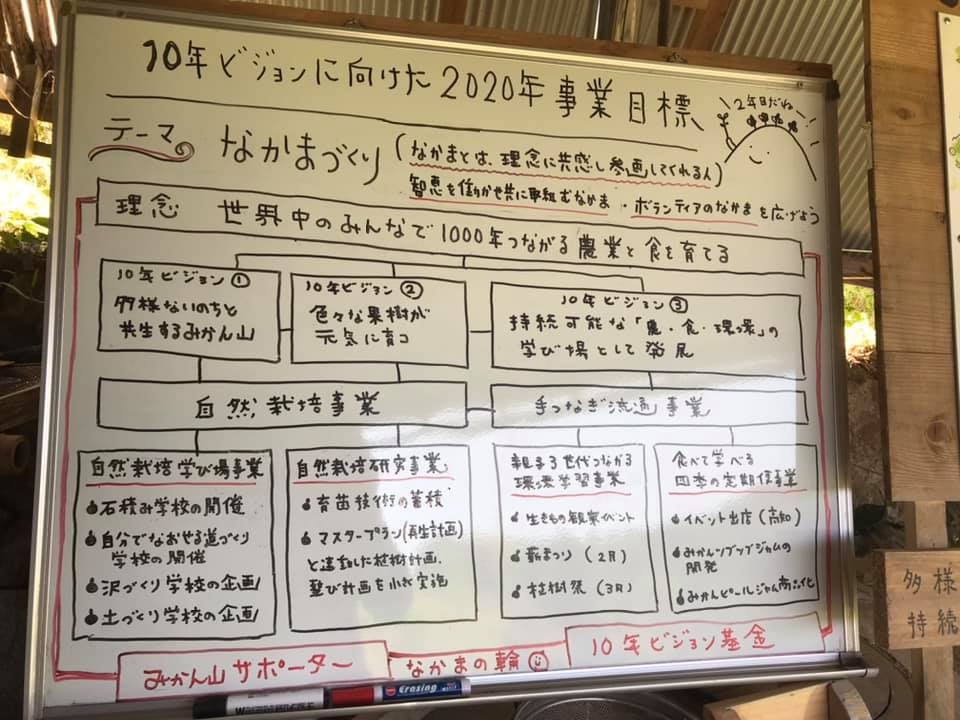 10年ビジョンに向けた2020年事業目標
2年目だね
テーマ なかまづくり (なかまとは、理念に共感し参画してくれる人)
智恵を働かせ共に取組むなかま・ボランティアのなかまを広げよう
理念 世界中のみんなで1000年つながる農業と食を育てる
10年ビジョン①
多様ないのちと
共生するみかん山
10年ビジョン②
色々な果樹が
元気に育つ
10年ビジョン③
持続可能な「農・食・環境」の
学び場として発展
自然栽培事業
手つなぎ流通事業
自然栽培学び場事業
石積み学校の開催
自分でなおせる道づくり
学校の開催
沢づくり学校の企画
土づくり学校の企画
自然栽培研究事業
育苗技術の蓄積
マスタープラン(再生計画)
と連動した植樹計画、
計画を小さく実施
親子3世代つながる
環境学習事業
生きもの観察イベント
薪まつり(2月)
植樹祭(3月)
食べて学べる
四季の定期便事業
イベント出店(高知)
みかんジャムの
開発
みかんピールジャム商品化
みかん山サポーター
なかまの輪
10年ビジョン基金
Erasing
多様
持続